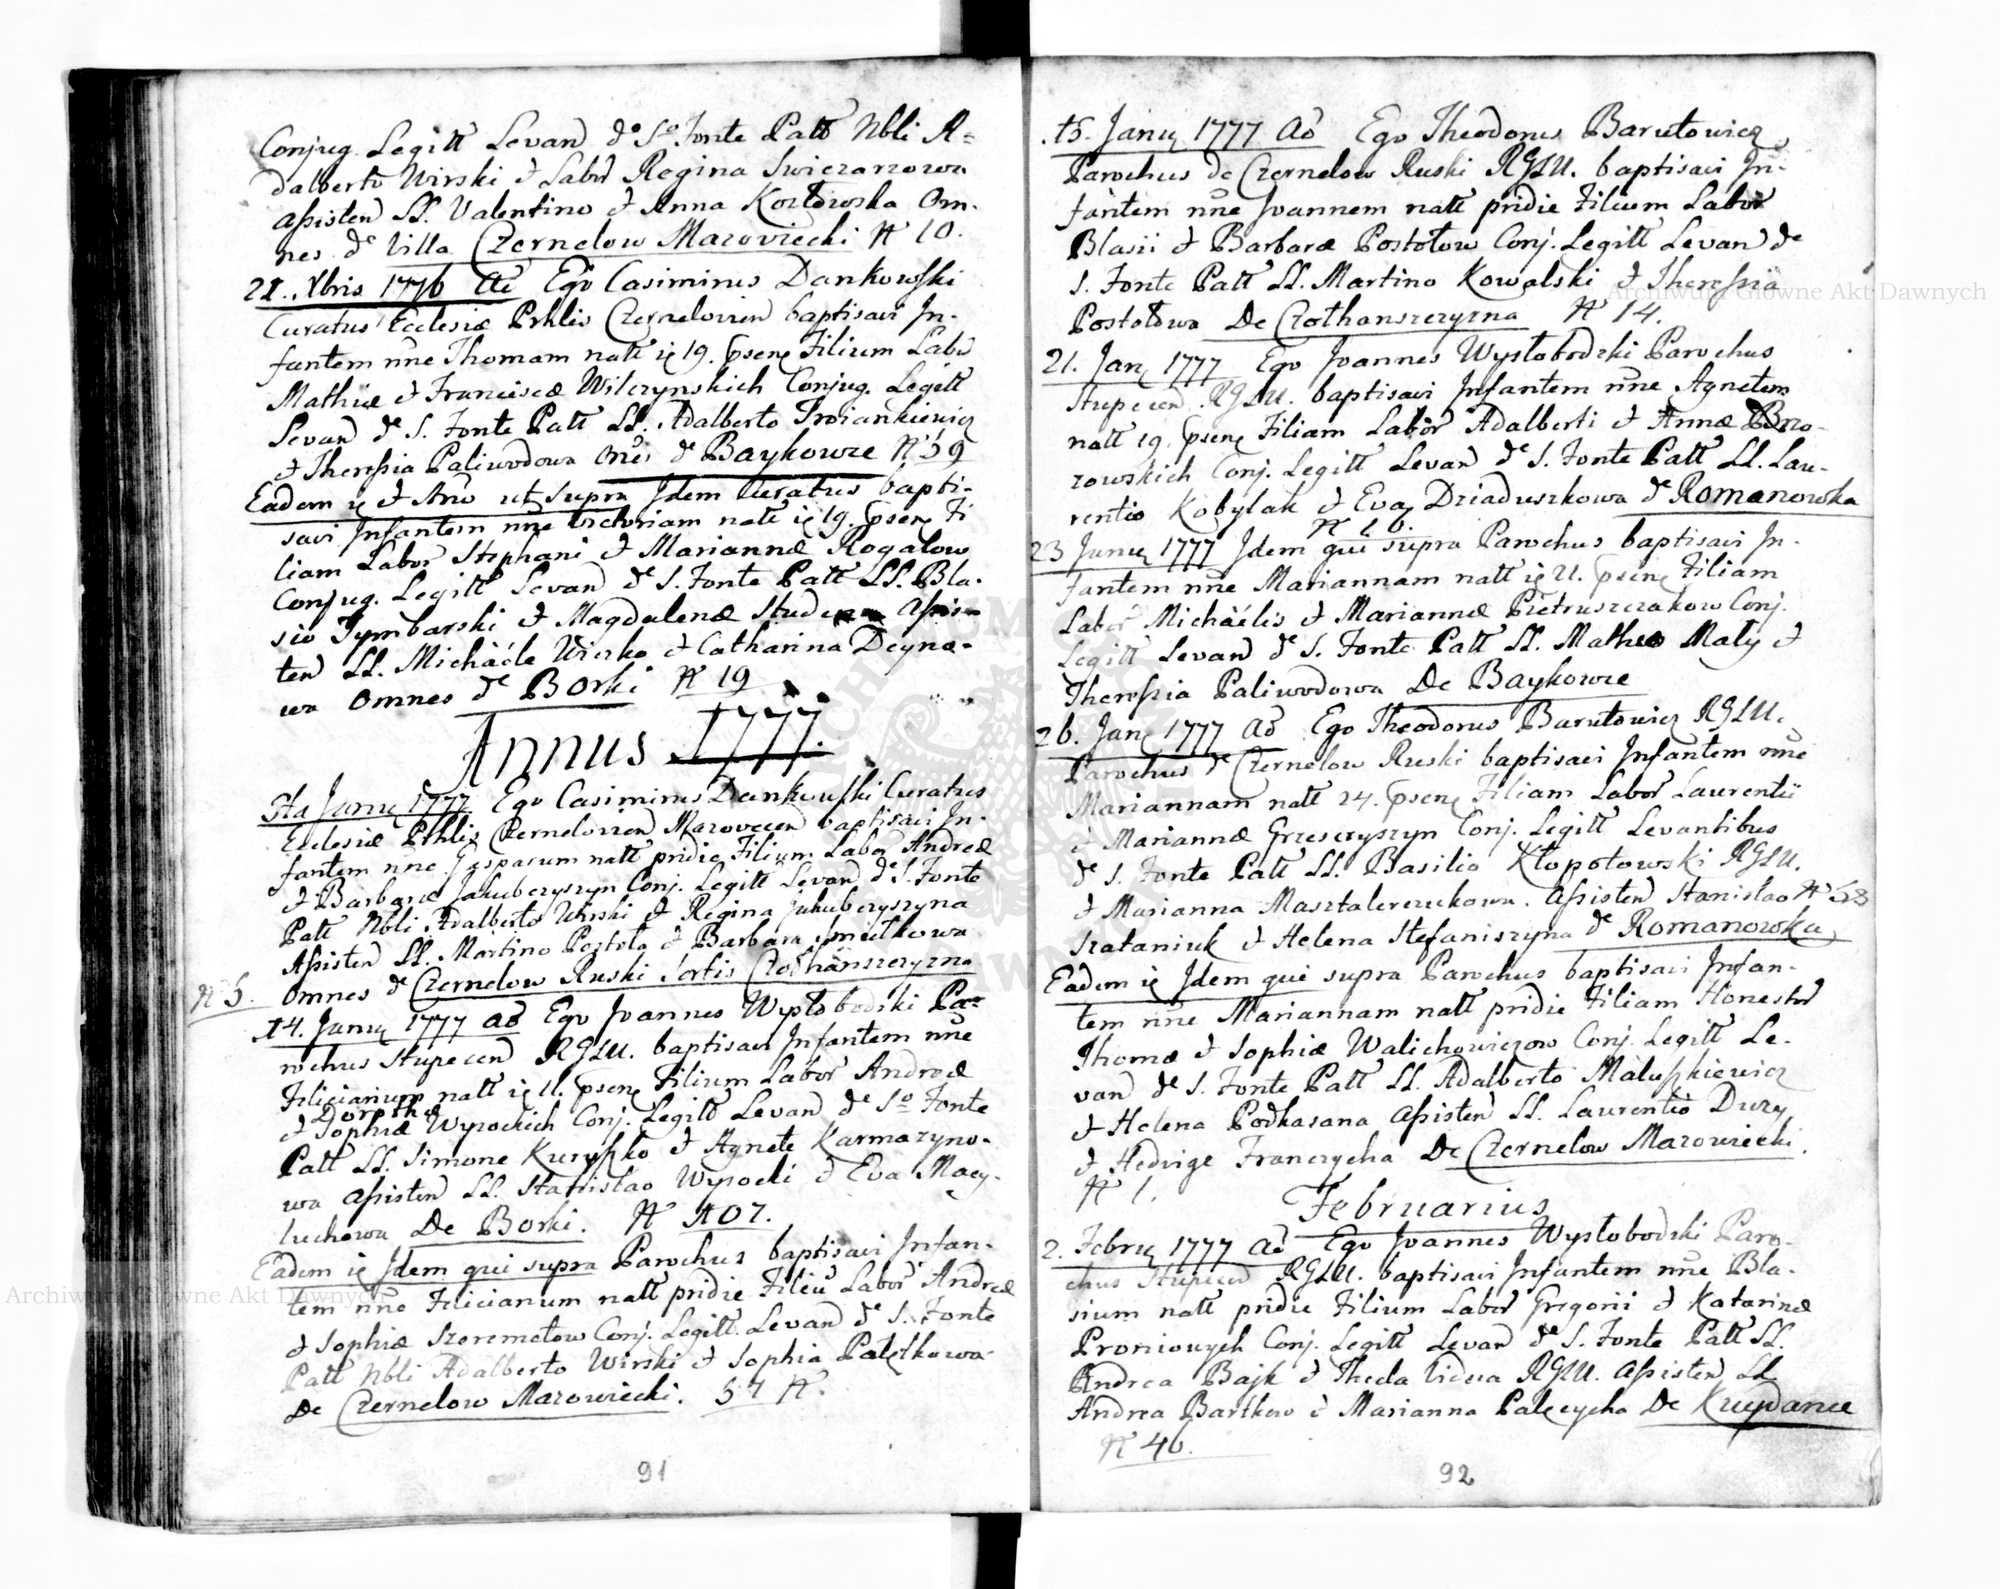 Conjug. Legitt Levan de So Fonte Patt Nbli A=
dalberto Wirski et Labr Regina Swiezarzowa
Assisten LL. Valentino et Anna Kozłowska Om.
nes de Villa Czernelow Mazowiecki N 10.
21. Xbris 1776 Ego Casimirus Dankowski
Curatus Ecclesiæ Prhlis Czernelovien baptisavi In-
fantem nne Thomam natt 19. psene Filium Labr
Mathiæ et Franciscæ Wilczynskich Conjug. Legitt
Levan de S. Fonte Patt LL. Adalberto Troiankiewicz
et Theressia Paliwodowa de Baykowce N 59
Eadem et Ano ut supra Idem Curatus bapti-
savi Infantem nne Victoriam natt 19. psene Fi
liam Labor Stephani et Mariannæ Rogalow
Conjug. Legitt Levan de S. Fonte Patt LL. Bla-
sio Tymbarski et Magdalenæ Assis-
ten LL. Michaele Wierko et Catharina Deyne-
wa Omnes de Borki N 19
Annus 1777.
Januy 1777 Ego Casimirus Dankowski Curatus
Ecclesiæ Prhlis Czernelovien Mazovecen baptisavi In-
fantem nne Gasparum natt pridie Filium Labor Andreæ
et Barbaræ Jakubczyszyn Conj. Legitt Levan de S. Fonte
Patt Nbli Adalberto Wirski et Regina Jakubczyszyna
Assisten LL. Martino Postoła et Barbara Smutkowa
Omnes de Czernelow Ruski Czołhanszczyzna
N 5.
14. Januy 1777 ao Ego Joannes Wysłobodzki Pa-
rochus Stupecen RGLU. baptisavi Infantem nne
Felicianum natt 11. psene Filium Labor Andreæ
Dorothæ
et Sophiæ Wysockich Conj. Legitt Levan de So Fonte
Patt LL. Simone Kuryszko et Agnete Karmazyno-
wa Assisten LL. Stanislao Wysocki et Eva Macy-
luchowa De Borki. N 107.
Eadem Idem qui supra Parochus baptisavi Infan-
tem nne Felicianum natt pridie Labor Andreæ
et Sophiæ Szeremetow Conj. Legitt Levan de S. Fonte
Patt Nbli Adalberto Wirski et Sophia Patetkowa
De Czernelow Mazowiecki. 54 N.
91
15. Januy 1777 Ao Ego Theodorus Barutowicz
Parochus de Czernelow Ruski RGLU. baptisavi In-
fantem nne Joannem natt pridie Filium Labor
Blasii et Barbaræ Postołow Conj. Legitt Levan de
S. Fonte Patt LL. Martino Kowalski et Theressia
Postołowa De Czołhanszczyzna N 14.
21. Jany 1777 Ego Joannes Wysłobodzki Parochus
Stupecen RGLU. baptisavi Infantem nne Agnetem
natt 19. psene Filiam Labor Adalberti et Annæ Brzo-
zowskich Conj. Legitt Levan de S. Fonte Patt LL. Lau-
rentio Kobylak et Eva Dziaduszkowa de Romanowka
N 16.
23 Januy 1777 Idem qui supra Parochus baptisavi In-
fantem nne Mariannam natt 21. psene Filiam
Labor Michaelis et Mariannæ Pietruszczakow Conj.
Legitt Levan de S. Fonte Patt LL. Matheo Mały et
Theressia Paliwodowa De Baykowce
26. Jany 1777 Ao Ego Theodorus Barutowicz RGLU.
Parochus de Czernelow Ruski baptisavi Infantem nne
Mariannam natt 24. psene Filiam Labor Laurentii
et Mariannæ Grzesczyszyn Conj. Legitt Levantibus
de S. Fonte Patt LL. Basilio Kłopotowski RGLU.
et Marianna Masztalerczukowa. Assisten Stanislao N 53
Szataniuk et Helena Stefaniszyna de Romanowka
Eadem Idem qui supra Parochus baptisavi Infan-
tem nne Mariannam natt pridie Filiam Honestor
Thomæ et Sophiæ Walichowiczow Conj. Legitt Le-
van de S. Fonte Patt LL. Adalberto Maluszkiewicz
et Helena Podkasana Assisten LL. Laurentio Duzy
et Hedvige Franczycha De Czernelow Mazowiecki.
N 1.
Februarius
2. Febry 1777 Ao Ego Joannes Wysłobodzki Paro-
chus Stupecen RGLU. baptisavi Infantem nne Bla-
sium natt pridie Filium Labor Gregorii et Katarinæ
Proniowych Conj. Legitt Levan de S. Fonte Patt LL.
Andrea Bajk et Theda Vidua RGLU. Assisten LL
Andrea Bartkow et Marianna Palecycha De Kuydance
N 46.
92
Archiwum Główne Akt Dawnych
Archiwum Główne Akt Dawnych